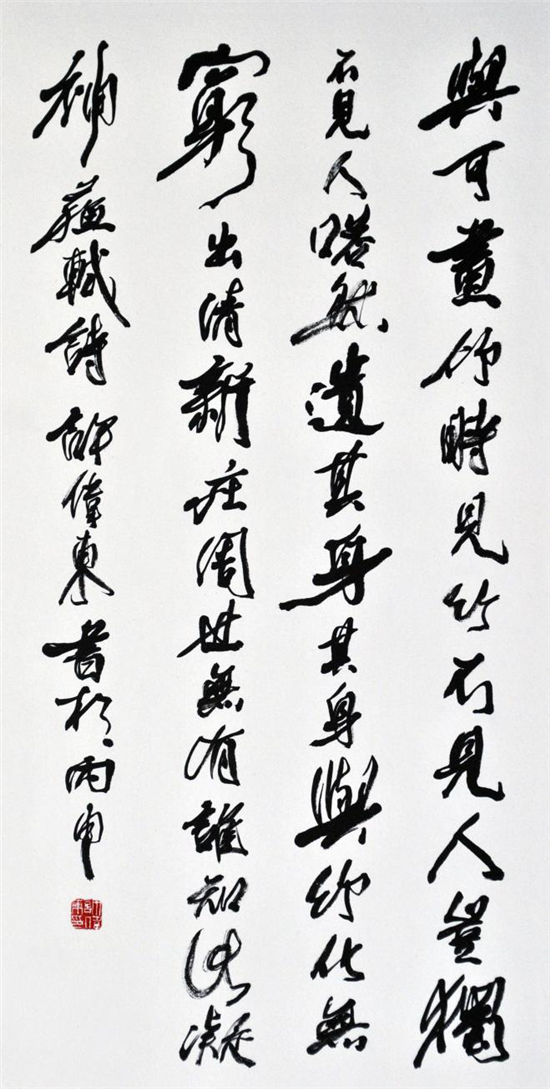 與可畫竹時見竹不見人豈獨
不見人嗒然遺其身其身與竹化無
窮出清新庄周世無有誰知此凝
神 蘇軾詩 許偉東書於丙申